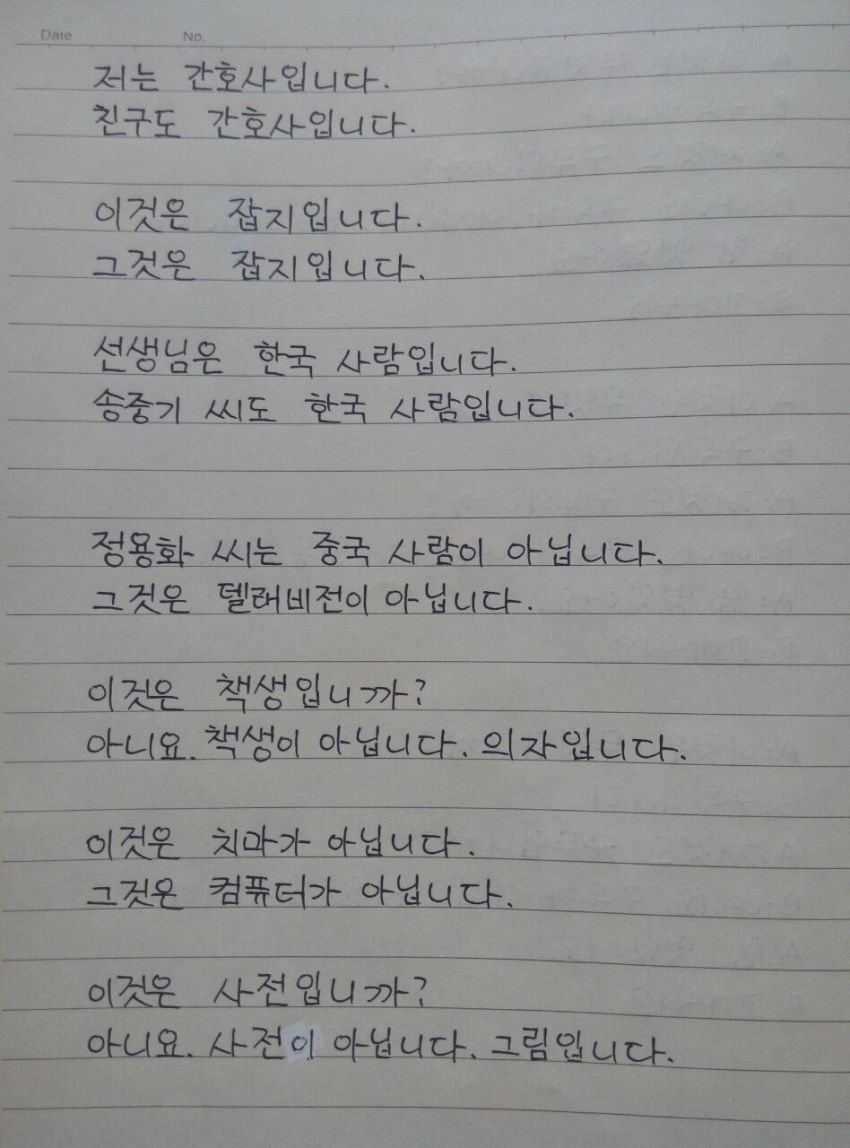 Date No.
저는 간호사입니다.
친구도 간호사입니다.
이것은 잡지입니다.
그것은 잡지입니다.
선생님은 한국 사람입니다.
송중기 씨도 한국 사람입니다.
정용화 씨는 중국 사람이 아닙니다.
그것은 텔래비전이 아닙니다.
이것은 책생입니까?
아니요. 책생이 아닙니다. 의자입니다.
이것은 치마가 아닙니다.
그것은 컴퓨터가 아닙니다.
이것은 사전입니까?
아니요. 사전이 아닙니다. 그림입니다.